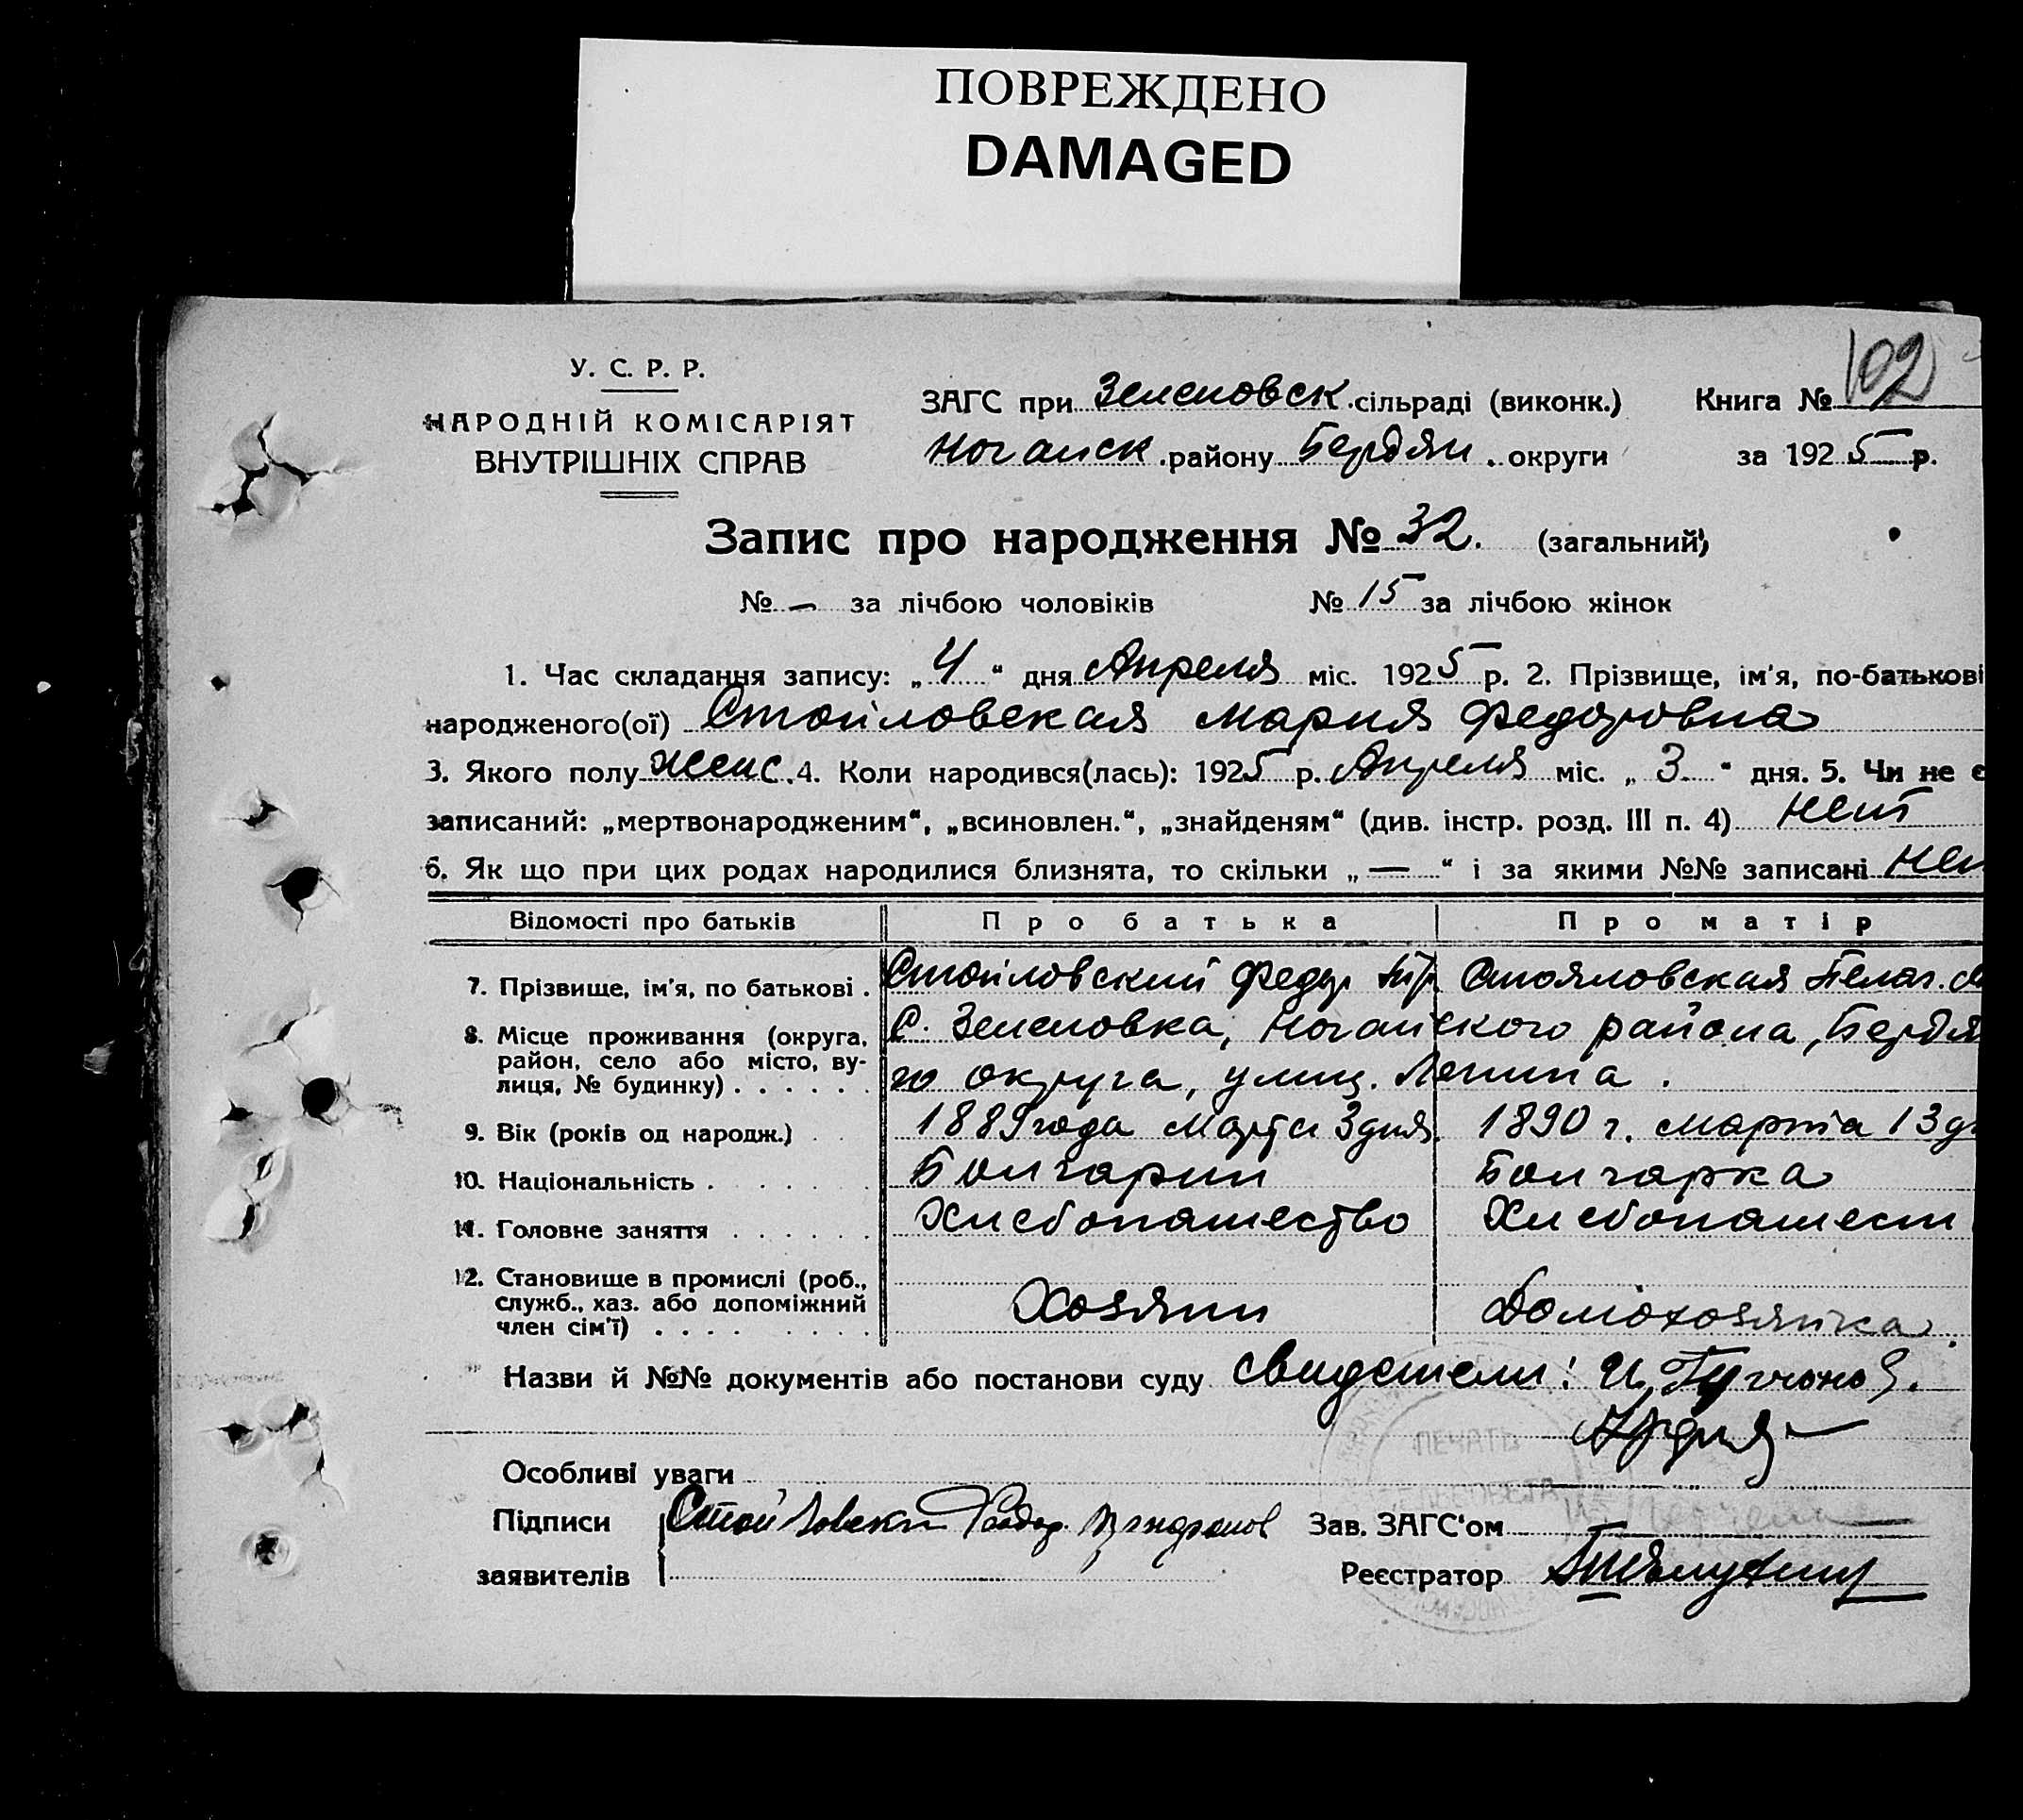 ПОВРЕЖДЕНО
DAMAGED
У. С. Р. Р.
НАРОДНІЙ КОМІСАРІЯТ
ВНУТРІШНІХ СПРАВ
ЗАГС при Зеленовск. сільраді (виконк.)
Ногайск. району Бердян. округи
Книга № 102
за 1925 р.
Запис про народження № 32. (загальний)
№ — за лічбою чоловіків № 15 за лічбою жінок
1. Час складання запису: „4“ дня Апреля міс. 1925 р. 2. Прізвище, ім'я, по-батькові
народженого(ої) Стойловская Мария Федоровна
3. Якого полу женс. 4. Коли народився(лась): 1925 р. Апреля міс. „3“ дня. 5. Чи не є
записаний: „мертвонародженим“, „всиновлен.“, „знайденям“ (див. інстр. розд. III п. 4) нет
6. Як що при цих родах народилися близнята, то скільки „—“ і за якими №№ записані
Відомості про батьків Про батька Про матір
7. Прізвище, ім'я, по батькові . Стойловский Федор Стояловская Пелаг.
8. Місце проживання (округа, район, село або місто, ву- лиця, № будинку) . . . . . .
С. Зеленовка, Ногайского района, Бердян
го округа, улиц. Ленина .
9. Вік (років од народж.) . . 1889 года Марта 3 дня. 1890 г. марта 13 д
10. Національність . . . . . Болгарин Болгарка
11. Головне заняття . . . . . . Хлебопашество Хлебопашест
12. Становище в промислі (роб., служб., хаз. або допоміжний член сім'ї) . . . . . . . .
Хозяин Домохозяйка.
Назви й №№ документів або постанови суду свидетели: И.
ПЕЧАТЬ
Особливі уваги
СЕЛЬСОВЕТА
Підписи Стойловски Федор Зав. ЗАГС'ом
заявителів Реєстратор